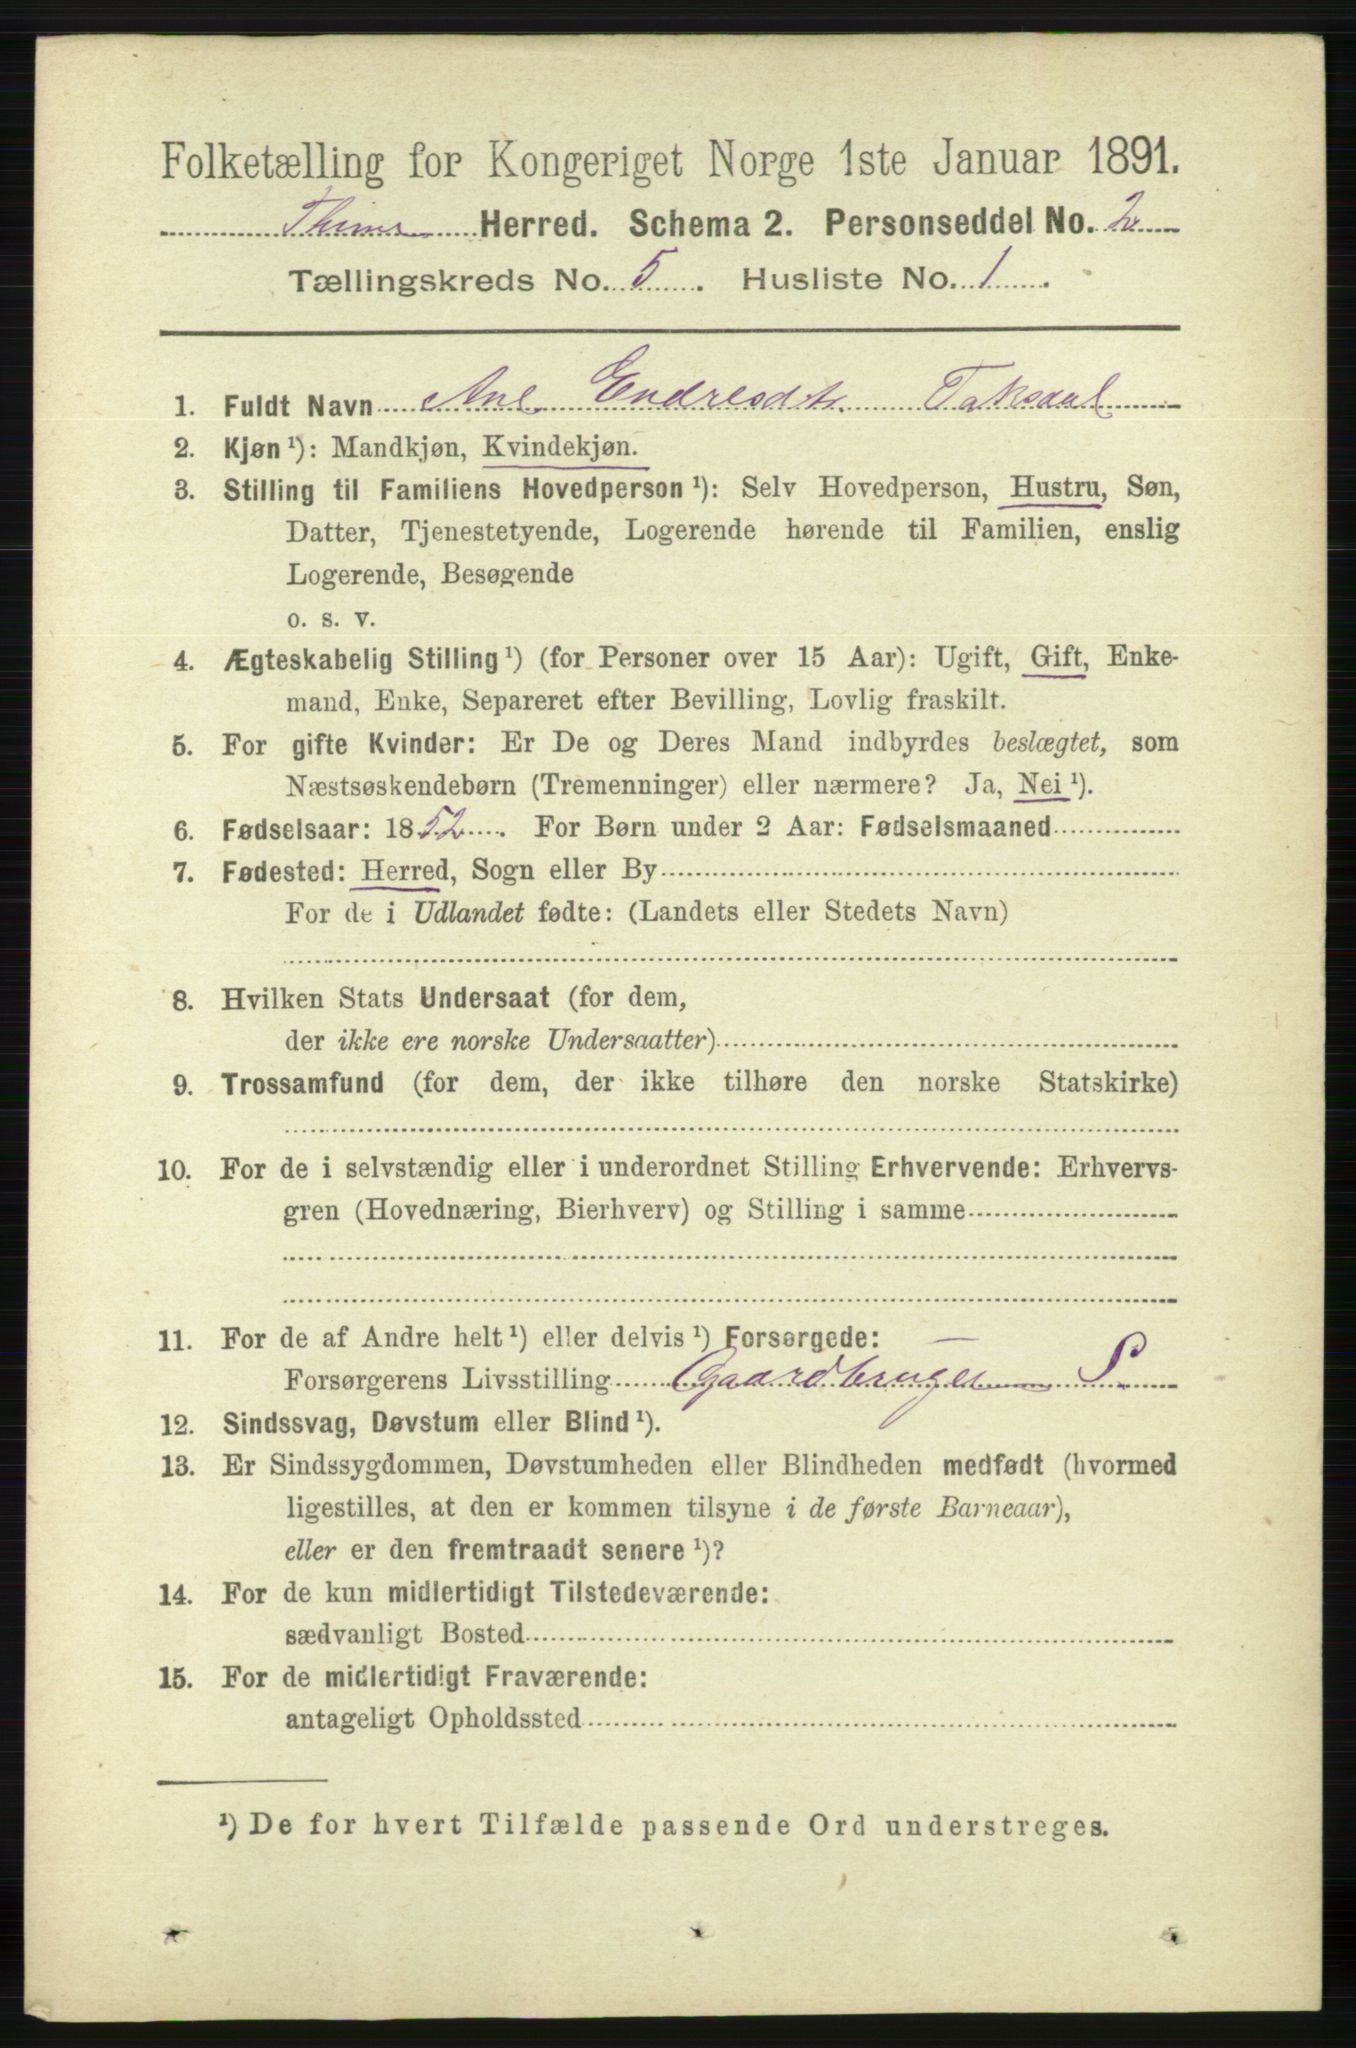 Folketælling for Kongeriget Norge 1ste Januar 1891.
Thime Herred. Schema 2. Personseddel No. 2
Tællingskreds No. 5. Husliste No. 1.
1. Fuldt Navn Ane Endresdtr. Taksdal
2. Kjøn ¹): Mandkjøn, Kvindekjøn.
3. Stilling til Familiens Hovedperson ¹): Selv Hovedperson, Hustru, Søn,
Datter, Tjenestetyende, Logerende hørende til Familien, enslig
Logerende, Besøgende
o. s. v.
4. Ægteskabelig Stilling ¹) (for Personer over 15 Aar): Ugift, Gift, Enke-
mand, Enke, Separeret efter Bevilling, Lovlig fraskilt.
5. For gifte Kvinder: Er De og Deres Mand indbyrdes beslægtet, som
Næstsøskendebørn (Tremenninger) eller nærmere? Ja, Nei ¹).
6. Fødselsaar: 1852. For Børn under 2 Aar: Fødselsmaaned
7. Fødested: Herred, Sogn eller By
For de i Udlandet fødte: (Landets eller Stedets Navn)
8. Hvilken Stats Undersaat (for dem,
der ikke ere norske Undersaatter)
9. Trossamfund (for dem, der ikke tilhøre den norske Statskirke)
10. For de i selvstændig eller i underordnet Stilling Erhvervende: Erhvervs-
gren (Hovednæring, Bierhverv) og Stilling i samme
11. For de af Andre helt ¹) eller delvis ¹) Forsørgede:
Forsørgerens Livsstilling Gaardbruger S
12. Sindssvag, Døvstum eller Blind ¹).
13. Er Sindssygdommen, Døvstumheden eller Blindheden medfødt (hvormed
ligestilles, at den er kommen tilsyne i de første Barneaar),
eller er den fremtraadt senere ¹)?
14. For de kun midlertidigt Tilstedeværende:
sædvanligt Bosted
15. For de midlertidigt Fraværende:
antageligt Opholdssted
¹) De for hvert Tilfælde passende Ord understreges.